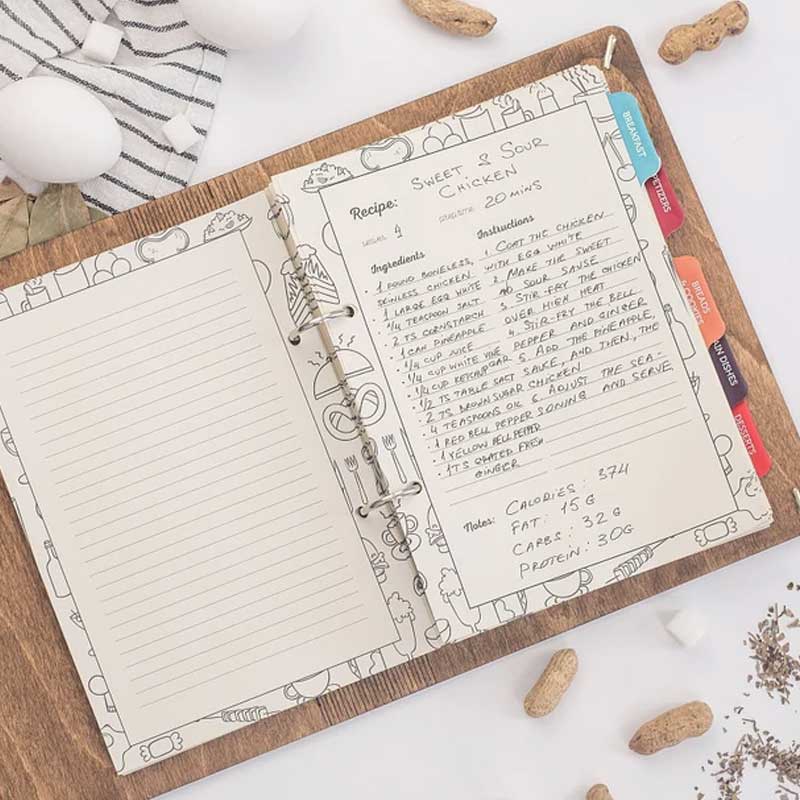 SWEET & SOUR
CHICKEN
Recipe:
20 MINS
4
Ingredients
• 1 POUND BONELESS,
SKINLESS CHICKEN
1 LARGE EGG WHITE
1/4 TEASPOON SALT
2 TS CORNSTARCH
• 1 CAN PINEAPPLE
• 1/4 CUP JUICE
• 1/4 CUP WHITE VINE
• 1/4 CUP KETCHUP
• 1/2 TS TABLE SALT
• 2 TS BROWN SUGAR
• 4 TEASPOONS OIL
• 1 RED BELL PEPPER
• 1 YELLOW BELL PEPPER
• 1 TS GRATED FRESH
GINGER
Instructions
1. COAT THE CHICKEN
WITH EGG WHITE
2. MAKE THE SWEET
SOUR SAUSE
3. STIR-FRY THE CHICKEN
OVER HIGH HEAT
4. STIR-FRY THE BELL
PEPPER AND GINGER
5. ADD THE PINEAPPLE,
SAUCE, AND THEN, THE
CHICKEN
6. ADJUST THE SEA-
SONING AND SERVE
Notes:
CALORIES: 374
FAT: 15 G
CARBS: 32 G
PROTEIN: 30G
BREAKFAST
PETIZERS
BREADS
& COOKIES
IN DISHES
DESSERTS